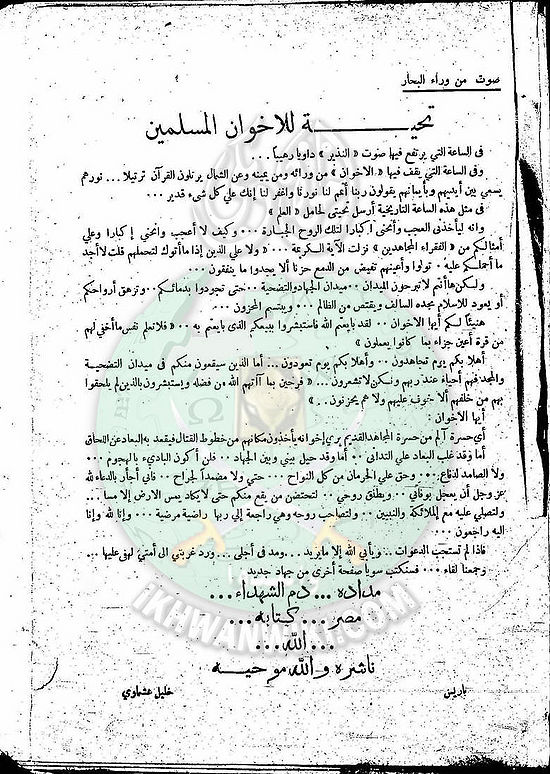 صوت من وراء البحار
تحيـــة للاخوان المسلمين
فى الساعة التي يرتفع فيها صوت « النذير » داويا رهيباً ...
وفى الساعة التي يقف فيها « الاخوان » من ورائه ومن يمينه وعن الشمال يرتلون القرآن ترتيلا ... نورهم
يسعى بين أيديهم وبأيمانهم يقولون ربنا أتمم لنا نورنا واغفر لنا إنك علي كل شىء قدير ...
فى مثل هذه الساعة التاريخية أرسل تحيتى لحامل « العلم »
وانه ليأخذنى العجب وأنحنى اكبارا لتلك الروح الجبارة ... وكيف لا أعجب وانحني إكبارا وعلي
أمثالكم من « الفقراء المجاهدين » نزلت الآية الكريمة ... « ولا علي الذين إذا ما أتوك لتحملهم قلت لا أجد
ما أحملكم عليه . تولوا وأعينهم تفيض من الدمع حزنا ألا يجدوا ما ينفقون ...
ولكن ها أنتم لا تبرحون الميدان ... ميدان الجهاد والتضحية ... حتى تجودوا بدمائكم ... وتزهق أرواحكم
أو يعود للاسلام مجده السالف ويقتص من الظالم ... ويبتسم المحزون ...
هنيئاً لكم أيها الاخوان .. لقد بايعتم الله فاستبشروا ببيعكم الذى بايعتم به ... « فلا تعلم نفس ما أخفي لهم
من قرة أعين جزاء بما كانوا يعملون »
أهلا بكم يوم تجاهدون ... وأهلا بكم يوم تعودون ... أما الذين سيقعون منكم فى ميدان التضحية
والمجد فهم أحياء عند ربهم ولكن لا تشعرون ... « فرحين بما آتاهم الله من فضله ويستبشرون بالذين لم يلحقوا
بهم من خلفهم ألا خوف عليهم ولا هم يحزنون .. »
أيها الاخوان :
أي حسرة آلم من حسرة المجاهد القديم يري إخوانه يأخذون مكانهم من خطوط القتال فيقعد به البعاد عن اللحاق
أما وقد غلب البعاد علي التدانى .. أما وقد حيل بينى وبين الجهاد .. فلن أكون البادىء بالهجوم ...
ولا الصامد لدفاع ... وحق علي الحرمان من كل النواح ... حتي ولا مضمداً لجراح .. فانى أجأر بالدعاء لله
عز وجل أن يعجل بوفاتي .. ويطلق روحي .. لتحتضن من يقع منكم حتى لا يكاد يمس الارض إلا مسا ..
ولتصلي عليه مع الملائكة والنبيين .. ولتصاحب روحه وهي راجعة إلي ربها راضية مرضية ... وإنا لله وإنا
اليه راجعون ...
فاذا لم تستجب الدعوات .. ويأبي الله إلا ما يريد ... ومد فى أجلى ... ورد غربتي الى أمتي لهفى عليها ..
وجمعنا لقاء ... فسنكتب سويا صفحة أخرى من جهاد جديد
مداده ... دم الشهداء ...
مصر ... كتابه ...
... الله ...
ناشره والله موحيـه
باريس
خليل عشماوي
IKHWANWIKI.COM